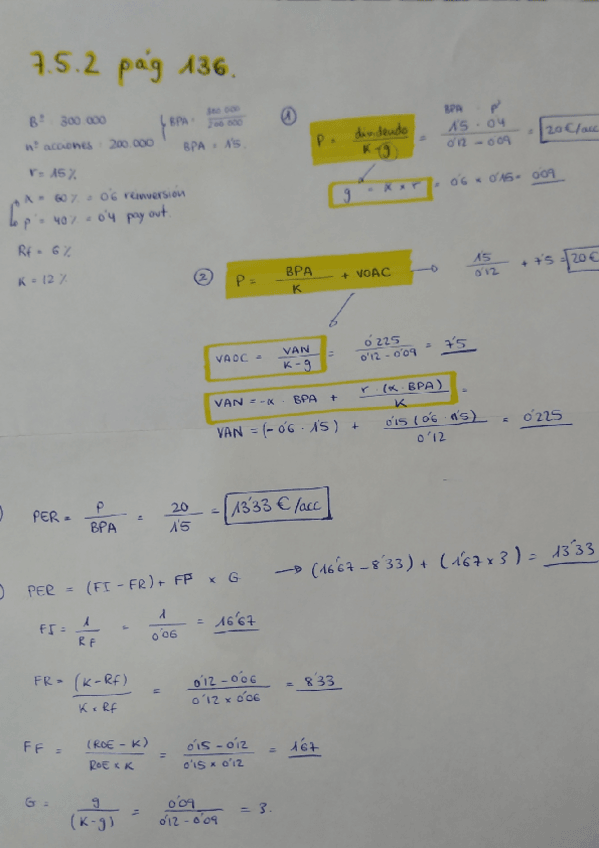 7.5.2 pág 136.
Bº : 300.000
BPA = 300.000 / 200.000
nº acciones : 200.000
BPA = 1'5.
r = 15%
x = 60% = 0'6 reinversión
p' = 40% = 0'4 pay out.
Rf = 6%
K = 12%
① P = dividendo / K-g = BPA · p' 1'5 · 0'4 / 0'12 - 0'09 = 20€/acc
g = x × r = 0'6 × 0'15 = 0'09
② P = BPA / K + VOAC → 1'5 / 0'12 + 7'5 = 20€
VAOC = VAN / K-g = 0'225 / 0'12-0'09 = 7'5
VAN = -x · BPA + r · (x · BPA) / K =
VAN = (-0'6 · 1'5) + 0'15 (0'6 · 1'5) / 0'12 = 0'225
) PER = P / BPA = 20 / 1'5 = 13'33 €/acc
) PER = (FI - FR) + FF × G → (16'67 - 8'33) + (1'67 × 3) = 13'33
FI = 1 / Rf = 1 / 0'06 = 16'67
FR = (K - Rf) / K × Rf = 0'12 - 0'06 / 0'12 × 0'06 = 8'33
FF = (ROE - K) / ROE × K = 0'15 - 0'12 / 0'15 × 0'12 = 1'67
G = g / (K-g) = 0'09 / 0'12 - 0'09 = 3.